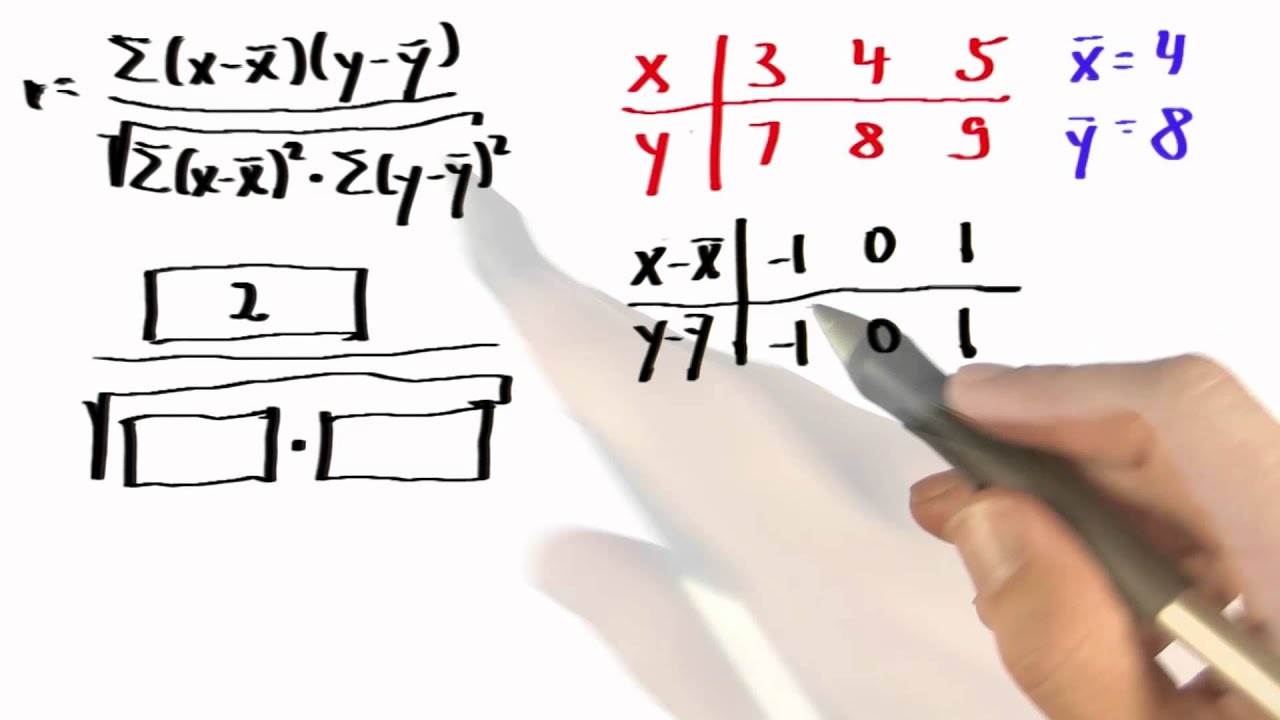 r = Σ(x-x̄)(y-ȳ)
√Σ(x-x̄)² · Σ(y-ȳ)²
x | 3 4 5
y | 7 8 9
x̄ = 4
ȳ = 8
x-x̄ | -1 0 1
y-ȳ | -1 0 1
2
√ ·